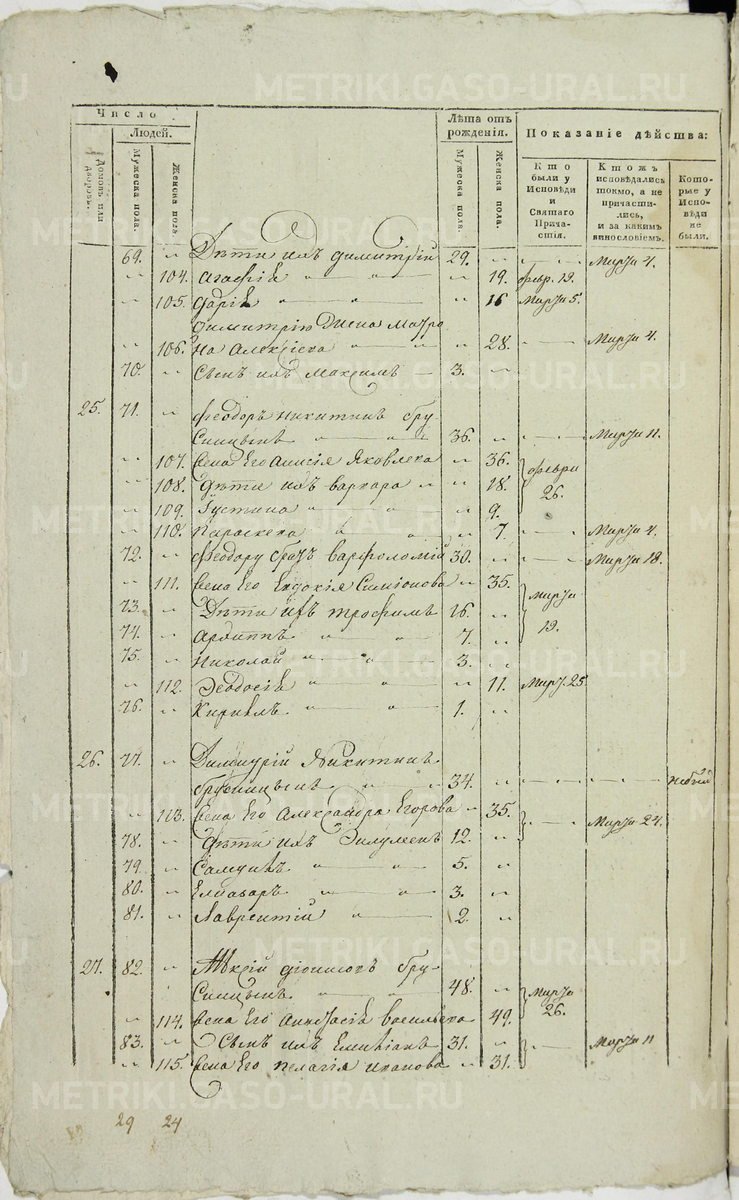 METRIKI.GASO-URAL.RU
Число
Людей.
Домовъ или дворовъ.
Мужеска пола.
Женска пола.
Лѣта отъ рожденія.
Мужеска пола.
Женска пола.
Показаніе дѣйства:
Кто были у Исповѣди и Святаго Причастія.
Ктожъ исповѣдались токмо, а не причастились, и за какимъ винословіемъ.
Которые у Исповѣди не были.
69. " Дѣти ихъ Димитрій 29. " Марта 4.
" 104. Агафія " " " 19. февр. 19.
" 105. Дарія " " " 16 Марта 5.
Димитрію Жена Матро
" 106. на Алексіева " " " 28. Марта 4.
70. " Сынъ ихъ Максимъ 3. "
25. 71. " Феодоръ Никитинъ Бру-
сницынъ " " 36. " Марта 11.
" 107. Жена Его Анисія Яковлева " 36.
февра
" 108. Дѣти ихъ Варвара " " 18.
26.
" 109. Іустина " " " 9.
" 110. Параскева " " " 7. Марта 4.
72. " Феодору братъ Варфоломій 30. " Марта 18.
" 111. Жена Его Евдокія Симіонова " 35.
Марта
73. " Дѣти ихъ Трофимъ 16. "
19.
74. " Архиппъ " " 7. "
75. " Николай " " 3. "
" 112. Феодосія " " " 11. Мар. 25
76. " Кирилъ " " 1. "
26. 77. " Димитрій Никитинъ
Брусницынъ " " 34. "
" 113. Жена Его Александра Егорова " 35.
Марта 24.
78. " Дѣти ихъ Филуменъ 12. "
79. " Самуилъ " " 5. "
80. " Елиазаръ " " 3. "
81. " Лаврентій " 2. "
27. 82. " Діонисовъ Бру-
сницынъ " " 48. "
Марта
" 114. Жена Его Анастасія Васильева " 49.
26.
83. " Сынъ ихъ Емиліанъ 31. " Марта 11
" 115. Жена Его Пелагія Иванова " 31.
29 24